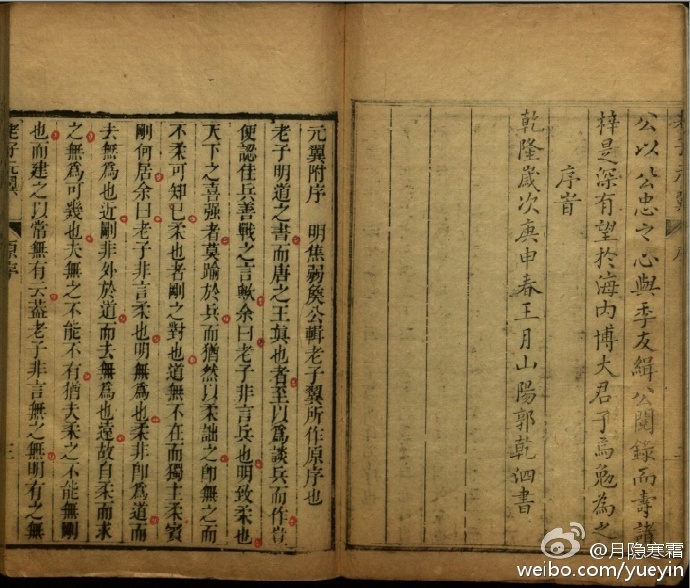 老子元翼 序 二
公以公忠之心與季友緝公閱錄而壽諸
梓是深有望於海內博大君子焉勉為之
序旹
乾隆歲次庚申春王月山陽郭乾泗書
元翼附序 明焦弱矦公輯老子翼所作原序也
老子明道之書而唐之王眞也者至以爲談兵而作豈
便認住兵善戰之言歟余曰老子非言兵也明致柔也
天下之喜强者莫踰於兵而猶然以柔詘之卽無之而
不柔可知已柔也者剛之對也道無不在而獨主柔賓
剛何居余曰老子非言柔也明無爲也柔非卽爲道而
去無爲也近剛非外於道而去無爲也遠故自柔而求
之無爲可幾也夫無之不能不有猶夫柔之不能無剛
也而建之以常無有云葢老子非言無之無明有之無
老子元翼 原序 三
@月隐寒霜
weibo.com/yueyin